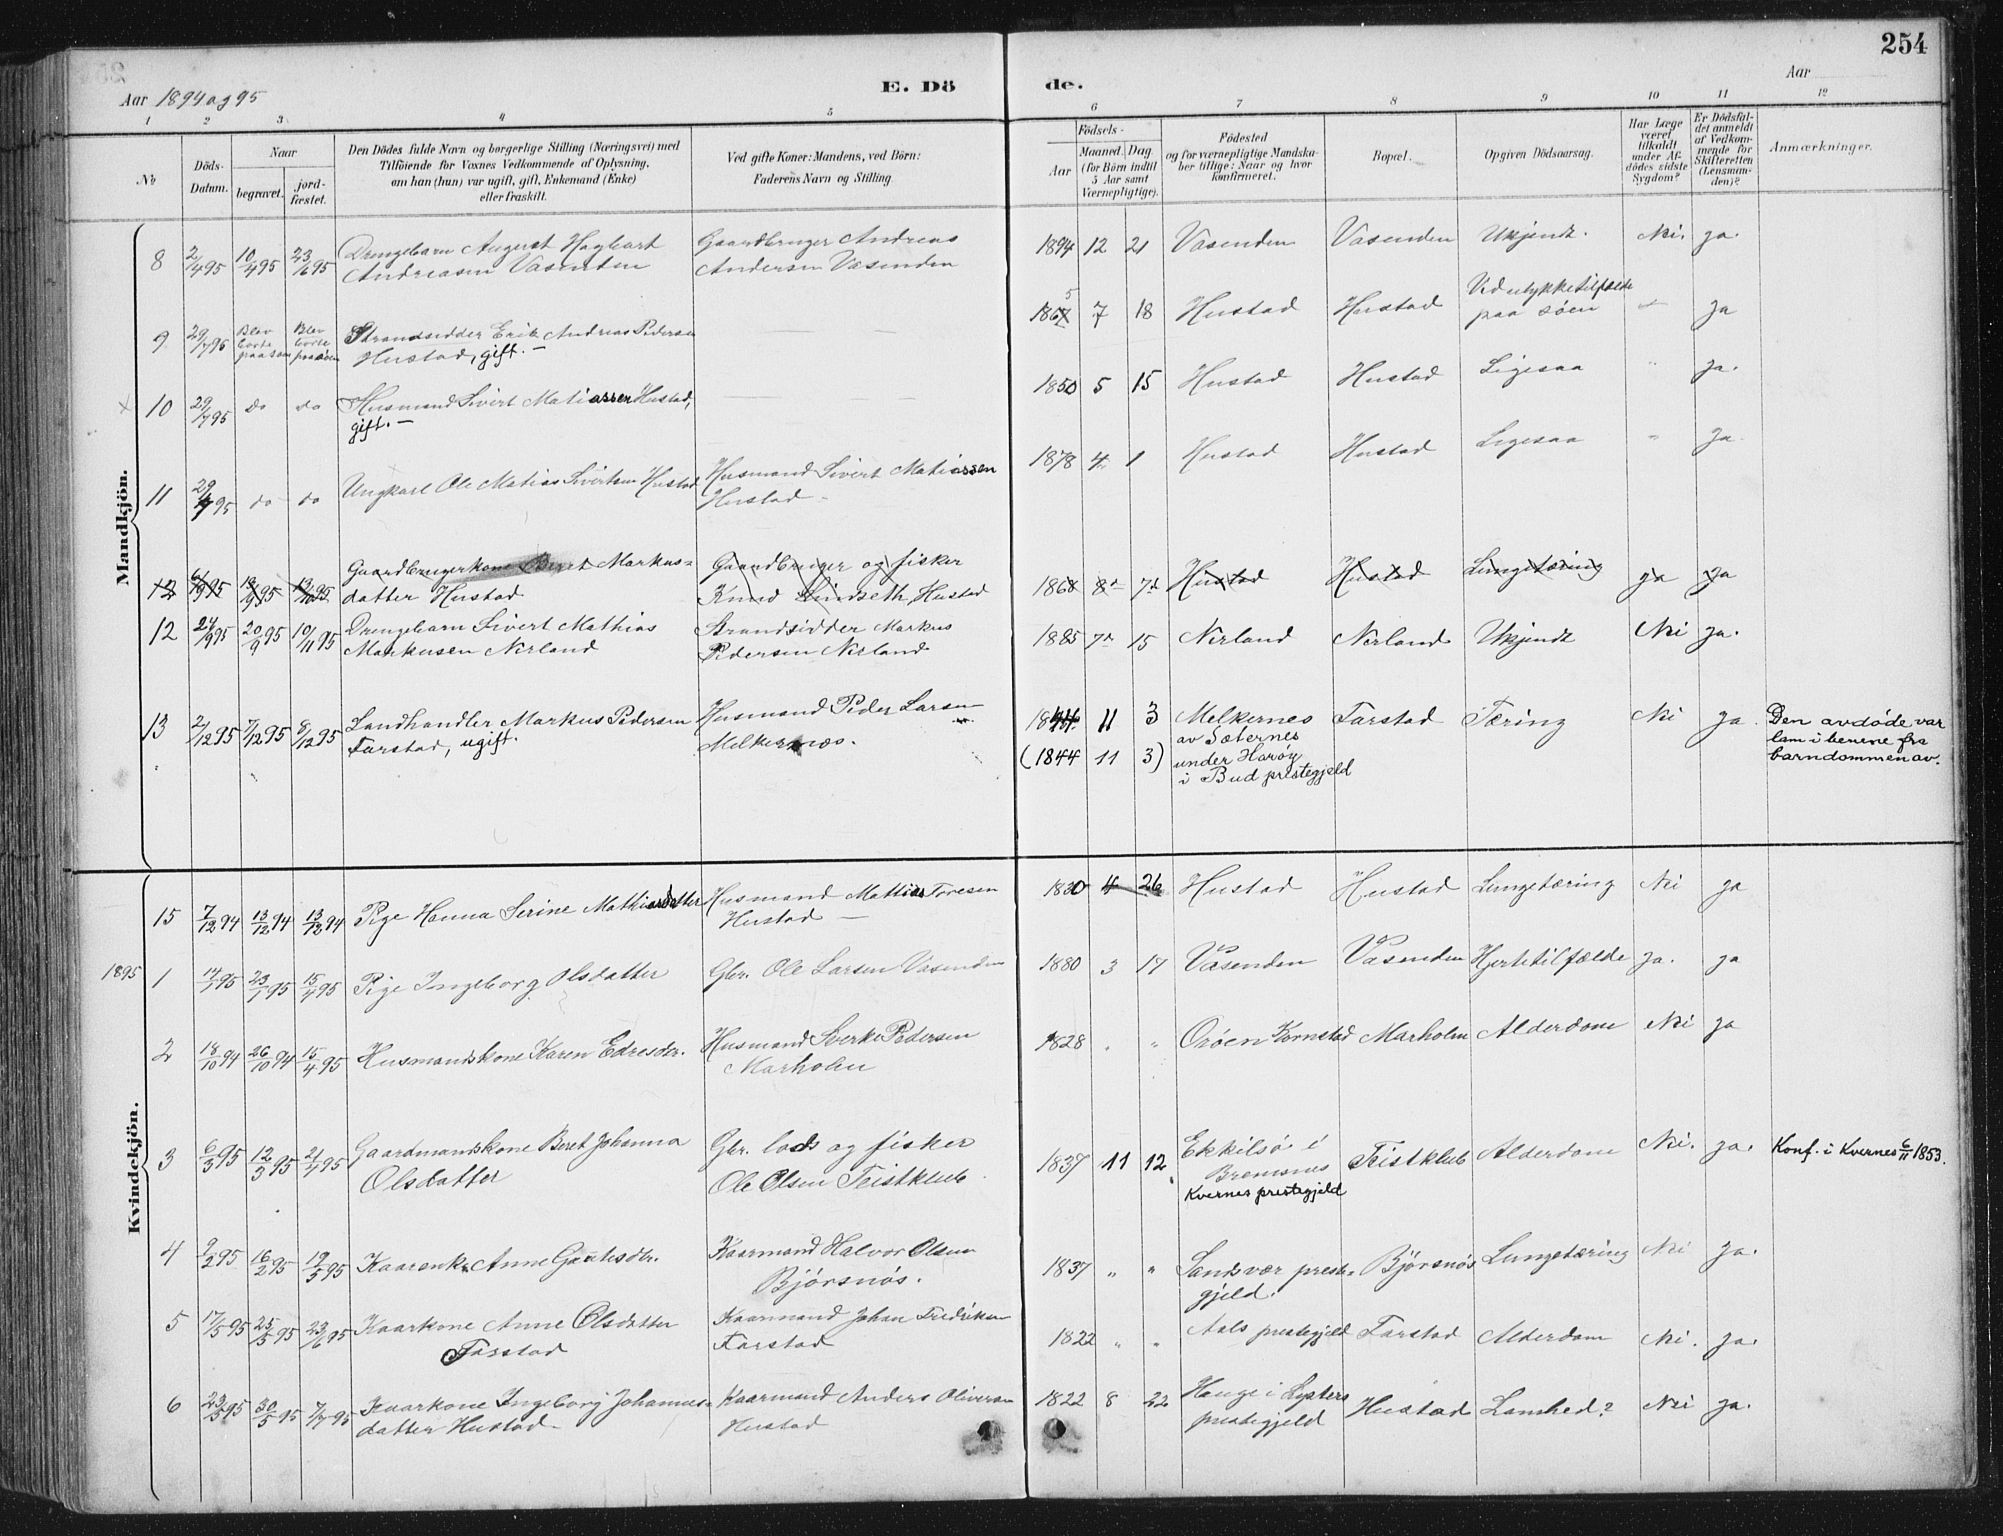 254
Aar 1894 og 95
E. Dö
de.
Aar
1 2 3 4 5 6 7 8 9 10 11 12
No
Döds-
Datum.
Naar
begravet.
jord-
fæstet.
Den Dödes fulde Navn og borgerlige Stilling (Næringsvei) med
Tilföiende for Voxnes Vedkommende af Oplysning,
om han (hun) var ugift, gift, Enkemand (Enke)
eller fraskilt.
Ved gifte Koner: Mandens, ved Börn:
Faderens Navn og Stilling
Födsels-
Aar
Maaned. Dag.
(for Börn indtil
5 Aar samt
Værnepligtige).
Födested
og for værnepligtige Mandska-
ber tillige: Naar og hvor
konfirmeret.
Bopæl.
Opgiven Dödsaarsag.
Har Læge
været
tilkaldt
under Af-
dödes sidste
Sygdom?
Er Dödsfal-
det anmeldt
af Vedkom-
mende for
Skifteretten
(Lensman-
den)?
Anmærkninger.
Mandkjön.
8 2/4 95 10/4 95 23/6 95 Drengebarn August Hagbart Gaardbruger Andreas 1894 12 21 Vasenden Vasenden Ukjendt. Nei. ja.
Andreasen Vasenden Andersen Vasenden
9 29/7 95 Blev borte paa søen Blev borte paa søen Strandsidder Erik Andreas Pedersen 1865 7 18 Hustad Hustad Ved ulykketilfælde ja
Hustad, gift. — paa søen
10 29/7 95 do do Husmand Sivert Matiassen Hustad, 1850 5 15 Hustad Hustad Ligesaa " ja.
gift. —
11 29/7 95 do do Ungkarl Ole Matias Sivertsen Hustad Husmand Sivert Matiassen 1878 4 1 Hustad Hustad Ligesaa " ja.
Hustad
12 6/9 95 13/9 95 13/10 95 Gaardbrugerkone Beret Markus= Gaardbruger og fisker 1868 8 7 Hustad Hustad Lungetæring ja ja
datter Hustad Knud Lindseth, Hustad
12 24/9 95 20/9 95 10/11 95 Drengebarn Sivert Mathias Strandsidder Markus 1885 7 15 Nerland Nerland Ukjendt Nei ja.
Markusen Nerland Pedersen Nerland
13 2/12 95 7/12 95 8/12 95 Landhandler Markus Pedersen Husmand Peder Larsen 1844 11 3 Melkernes Farstad Tæring Nei ja. Den avdöde var
Farstad, ugift. Melkernæs. av Sæternes lam i benene fra
(1844 11 3) under Harøy barndommen av.
i Bud prestegjeld
Kvindekjön.
15 7/12 94 13/12 94 13/12 94 Pige Hanna Serine Mathiasdatter Husmand Mathias Toresen 1830 4 26 Hustad Hustad Lungetæring Nei ja
Hustad —
1895
1 14/1 95 23/1 95 15/4 95 Pige Ingeborg Olsdatter Gbr. Ole Larsen Vasenden 1880 3 17 Vasenden Vasenden Hjertetilfælde ja. ja
2 18/10 94 26/10 94 15/4 95 Husmandskone Karen Edresdtr. Husmand Sverke Pedersen 1828 " " Orøen Kornstad Marholm Alderdom Nei ja
Marholm
3 6/3 95 12/3 95 21/4 95 Gaardmandskone Beret Johanna Gbr. lods og fisker 1837 11 12 Ekkilsø i Teistklub Alderdom Nei. ja. Konf. i Kvernes 6/11 1853.
Olsdatter Ole Olsen Teistklub Bremsnes
Kvernes prestegjeld
4 9/2 95 16/2 95 19/5 95 Kaarenke Anne Gautesdtr. Kaarmand Halvor Olsen 1837 " " Sandsvær preste= Bjørsnøs Lungetæring Nei ja.
Bjørsnøs. gjeld.
5 17/5 95 25/5 95 23/6 95 Kaarkone Anne Olsdatter Kaarmand Johan Fredriksen 1822 " " Aals prestegjeld Farstad Alderdom Nei. ja.
Farstad Farstad
6 23/5 95 30/5 95 7/7 95 Kaarkone Ingeborg Johannes= Kaarmand Anders Oliversen 1822 8 22 Hauge i Lysters Hustad Lamhed? Nei ja.
datter Hustad Hustad prestegjeld